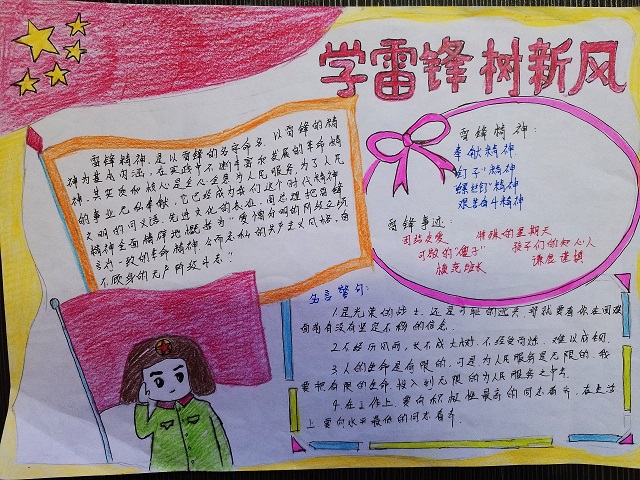 学雷锋树新风
雷锋精神，是以雷锋的名字命名，以雷锋的精
神为基本内涵，在实践中不断丰富和发展的革命精
神，其实质和核心是全心全意为人民服务，为了人民
的事业无私奉献，它已经成为我们这个时代精神
文明的同义语、先进文化的表征。周总理把雷锋
精神全面精辟地概括为“爱憎分明的阶级立场
言行一致的革命精神、公而忘私的共产主义风格、奋
不顾身的无产阶级斗志”。
雷锋精神：
奉献精神
“钉子”精神
“螺丝钉”精神
艰苦奋斗精神
雷锋事迹：
团结友爱 特殊的星期天
可敬的“傻子” 孩子们的知心人
模范班长 谦虚谨慎
名言警句：
1.是光荣的战士，还是可耻的逃兵，那就要看你在困难
面前有没有坚定不移的信念。
2.不经风雨，长不成大树，不经受百炼，难以成钢。
3.人的生命是有限的，可是为人民服务是无限的，我
要把有限的生命，投入到无限的为人民服务之中去。
4.在工作上，要向积极性最高的同志看齐，在生活
上，要向水平最低的同志看齐。